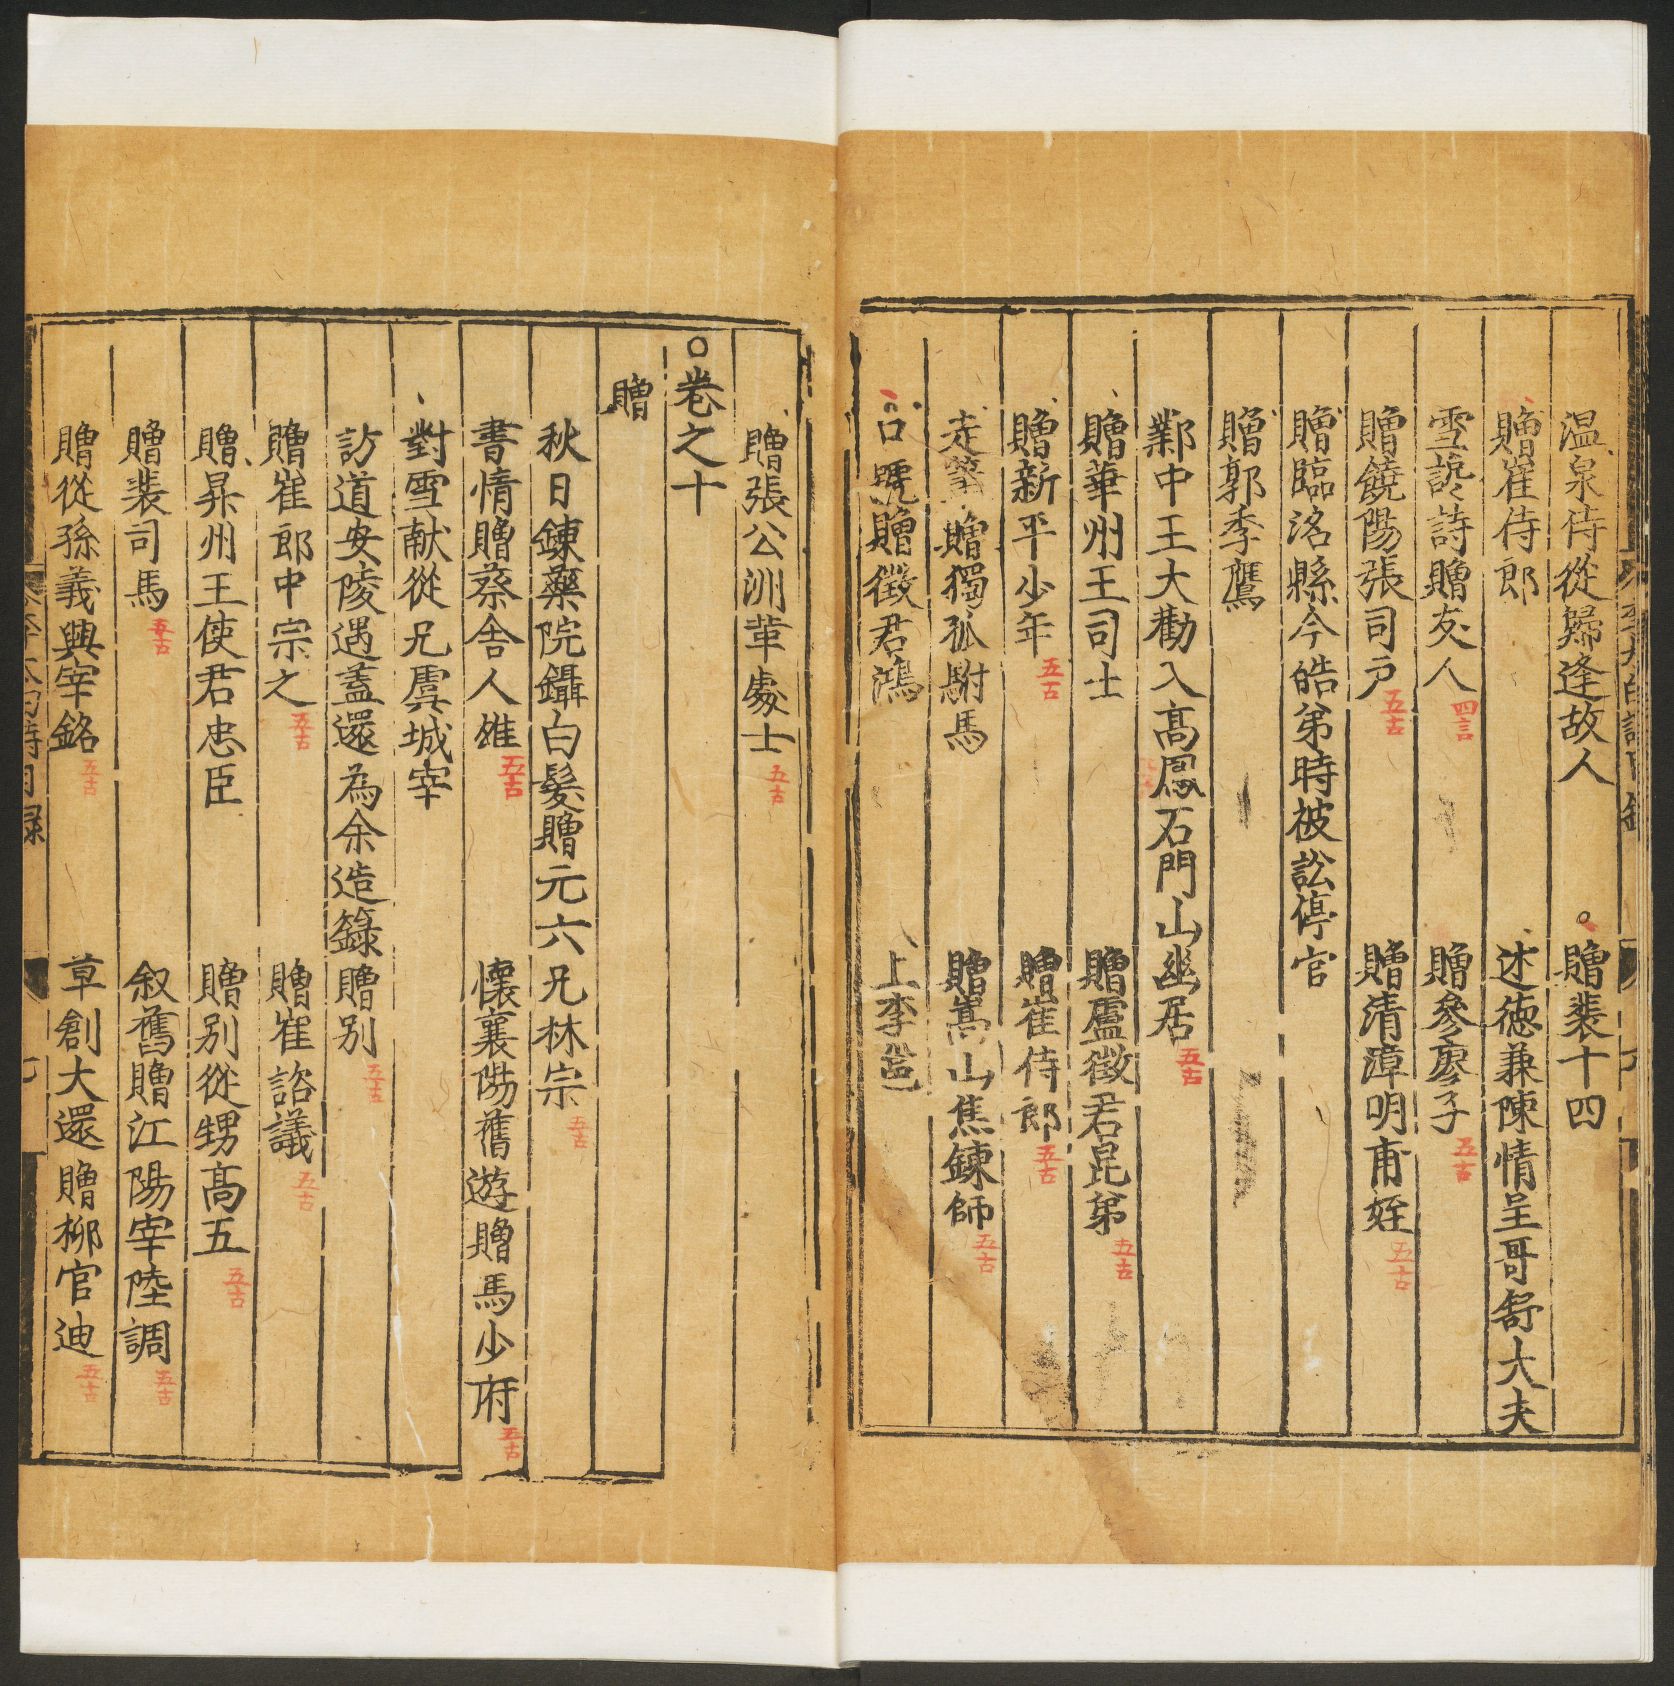 温泉侍從歸逢故人　贈裴十四
贈崔侍郎　述德兼陳情呈哥舒大夫
雪讒詩贈友人 四言　贈參廖子 五古
贈饒陽張司户 五古　贈清漳明甫姪 五古
贈臨洺縣令皓弟時被訟停官
贈郭季鷹
鄴中王大勸入高鳳石門山幽居 五古
贈華州王司士　贈盧徵君昆弟 五古
贈新平少年 五古　贈崔侍郎 五古
走筆贈獨孤駙馬　贈嵩山焦鍊師 五古
口號贈徵君鴻　上李邕
贈張公洲革處士 五古
○卷之十
贈
秋日鍊藥院鑷白髮贈元六兄林宗 五古
書情贈蔡舍人雄 五古　懷襄陽舊遊贈馬少府 五古
對雪献從兄虞城宰
訪道安陵遇蓋還為余造籙贈别 五古
贈崔郎中宗之 五古　贈崔諮議 五古
贈昇州王使君忠臣　贈别從甥高五 五古
贈裴司馬 五古　叙舊贈江陽宰陸調 五古
贈從孫義興宰銘 五古　草創大還贈柳官迪 五古